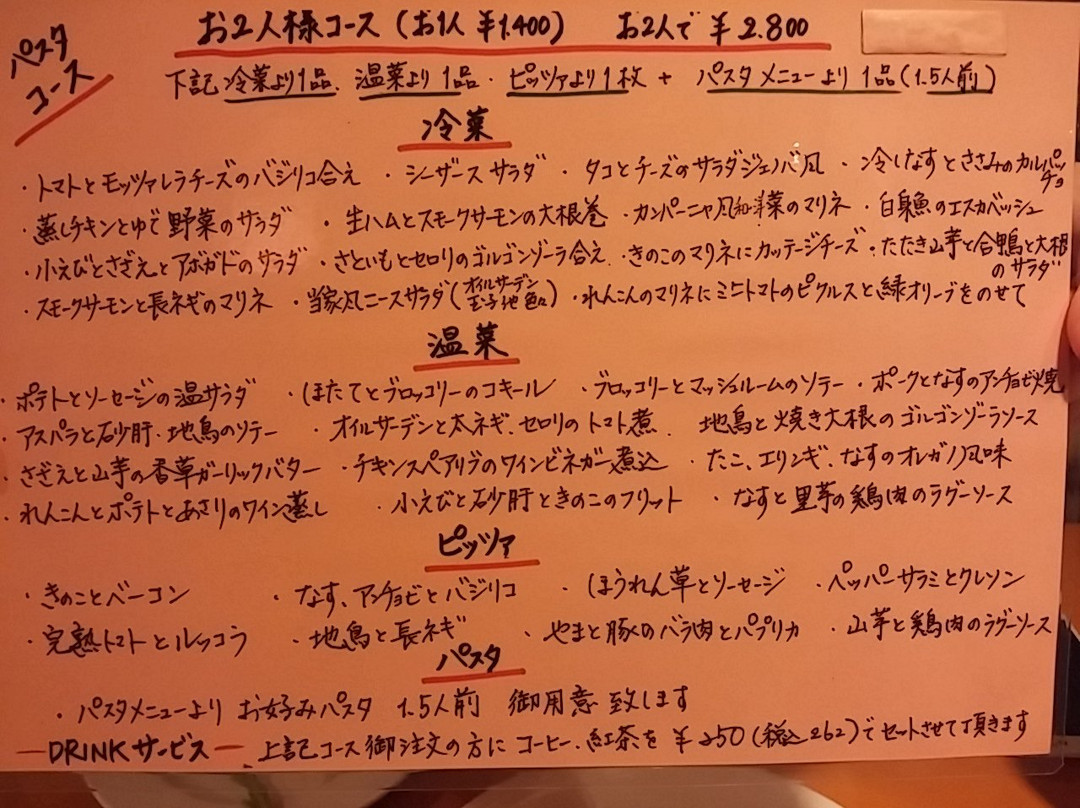 パスタコース
お2人様コース（お1人 ¥1.400） お2人で ¥ 2.800
下記 冷菜より1品、温菜より1品・ピッツァより1枚 + パスタメニューより 1品（1.5人前）
冷菜
・トマトとモッツァレラチーズのバジリコ合え ・シーザースサラダ ・タコとチーズのサラダジェノバ風 ・冷しなすとささみのカルパッチョ
・蒸しチキンとゆで野菜のサラダ ・生ハムとスモークサーモンの大根巻 ・カンパーニャ風和洋菜のマリネ ・白身魚のエスカベッシュ
・小えびとさざえとアボガドのサラダ ・さといもとセロリのゴルゴンゾーラ合え ・きのこのマリネにカッテージチーズ ・たたき山芋と合鴨と大根のサラダ
・スモークサーモンと長ネギのマリネ ・当家風ニースサラダ（オイルサーデン 玉子 他 色々） ・れんこんのマリネにミニトマトのピクルスと緑オリーブをのせて
温菜
・ポテトとソーセージの温サラダ ・ほたてとブロッコリーのコキール ・ブロッコリーとマッシュルームのソテー ・ポークとなすのアンチョビ焼
・アスパラと砂肝・地鳥のソテー ・オイルサーデンと太ネギ、セロリのトマト煮 ・地鳥と焼き大根のゴルゴンゾーラソース
・さざえと山芋の香草ガーリックバター ・チキンスペアリブのワインビネガー煮込 ・たこ、エリンギ、なすのオレガノ風味
・れんこんとポテトとあさりのワイン蒸し ・小えびと砂肝ときのこのフリット ・なすと里芋の鶏肉のラグーソース
ピッツァ
・きのことベーコン ・なす、アンチョビとバジリコ ・ほうれん草とソーセージ ・ペッパーサラミとクレソン
・完熟トマトとルッコラ ・地鳥と長ネギ ・やまと豚のバラ肉とパプリカ ・山芋と鶏肉のラグーソース
パスタ
・パスタメニューより お好みパスタ 1.5人前 御用意致します
—DRINKサービス— ・上記コース御注文の方に コーヒー・紅茶を ¥250（税込262）でセットさせて頂きます